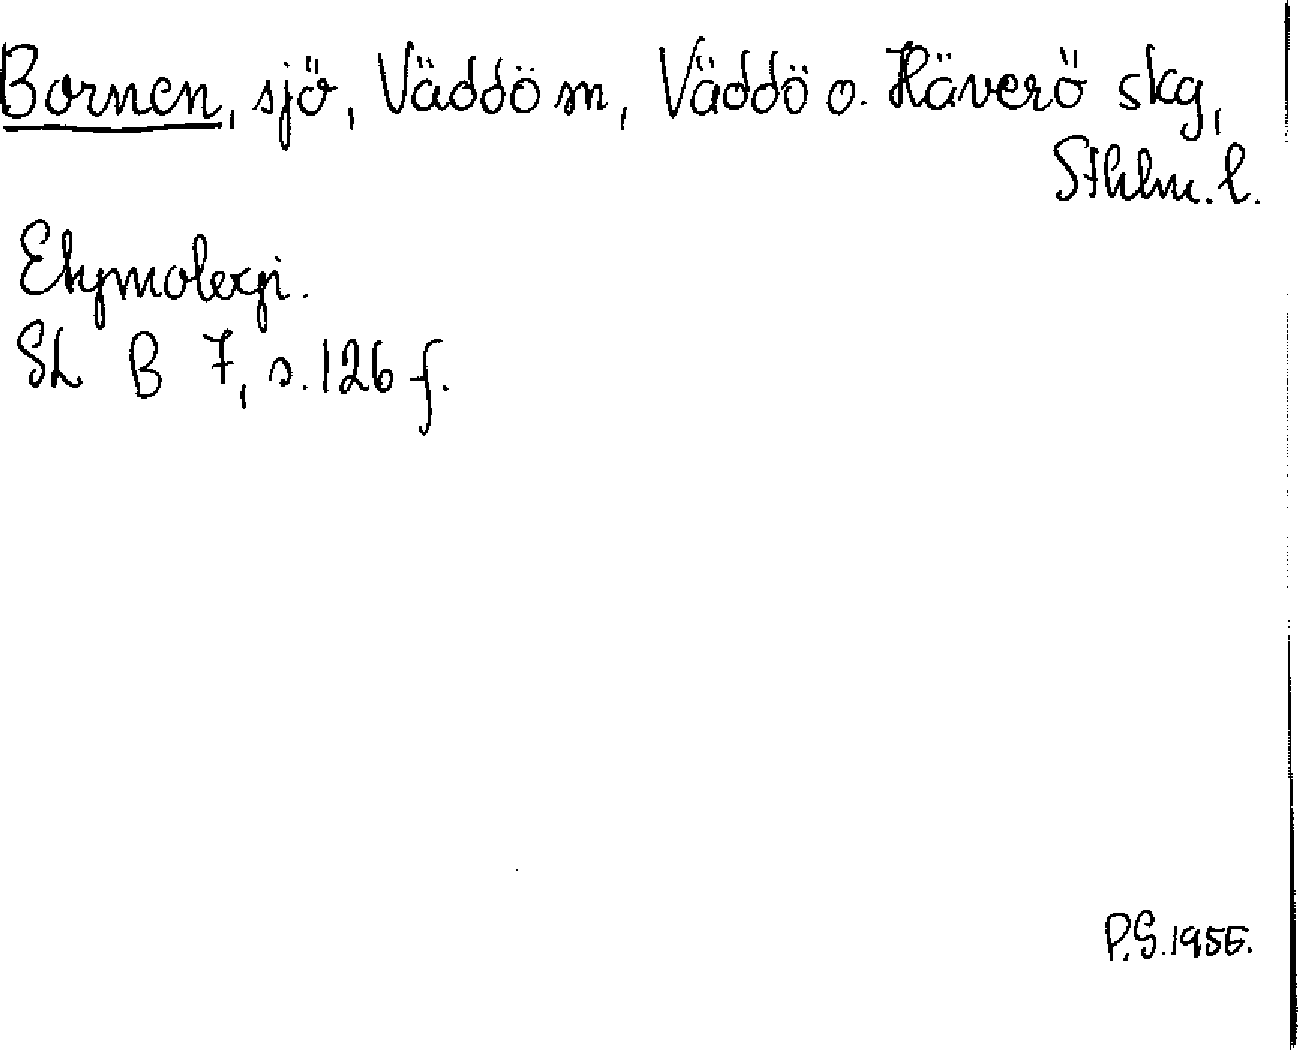 Bornen, sjö, Väddö m, Väddö o. Häverö skg,
Sthlm. l.
Etymologi.
SL B 7, s. 126 f.
P.S. 1955.